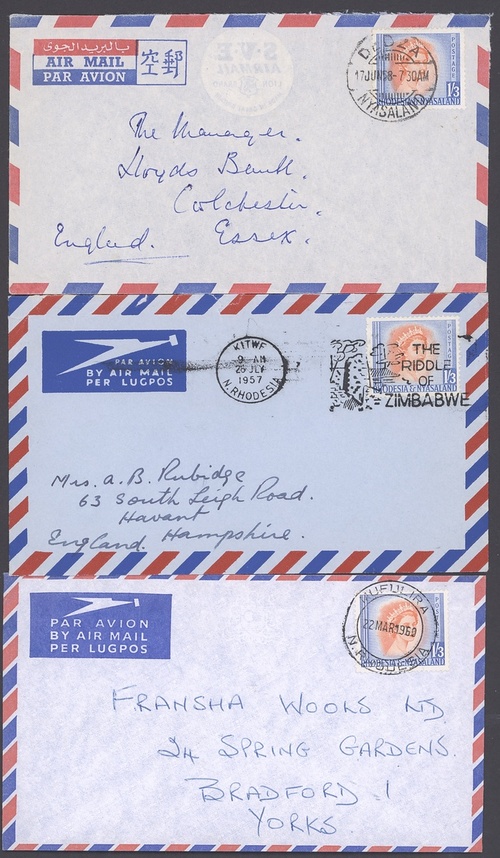 بالبريد الجوى
AIR MAIL
PAR AVION
空郵
S.V.E
AIRMAIL
DEDZA
17 JUN 58-7 30AM
NYASALAND
POSTAGE
1/3
RHODESIA & NYASALAND
The Manager.
Lloyds Bank.
Colchester.
England. Essex.
PAR AVION
BY AIR MAIL
PER LUGPOS
KITWE
9 - AM
26 JLY
1957
N. RHODESIA
THE
RIDDLE
OF
ZIMBABWE
POSTAGE
1/3
RHODESIA & NYASALAND
Mrs. A. B. Rubidge
63 South Leigh Road.
Havant
England. Hampshire.
PAR AVION
BY AIR MAIL
PER LUGPOS
MUFULIRA
22 MAR 1960
N. RHODESIA
POSTAGE
1/3
RHODESIA & NYASALAND
FRANSHA WOOLS LTD.
24 SPRING GARDENS.
BRADFORD 1
YORKS